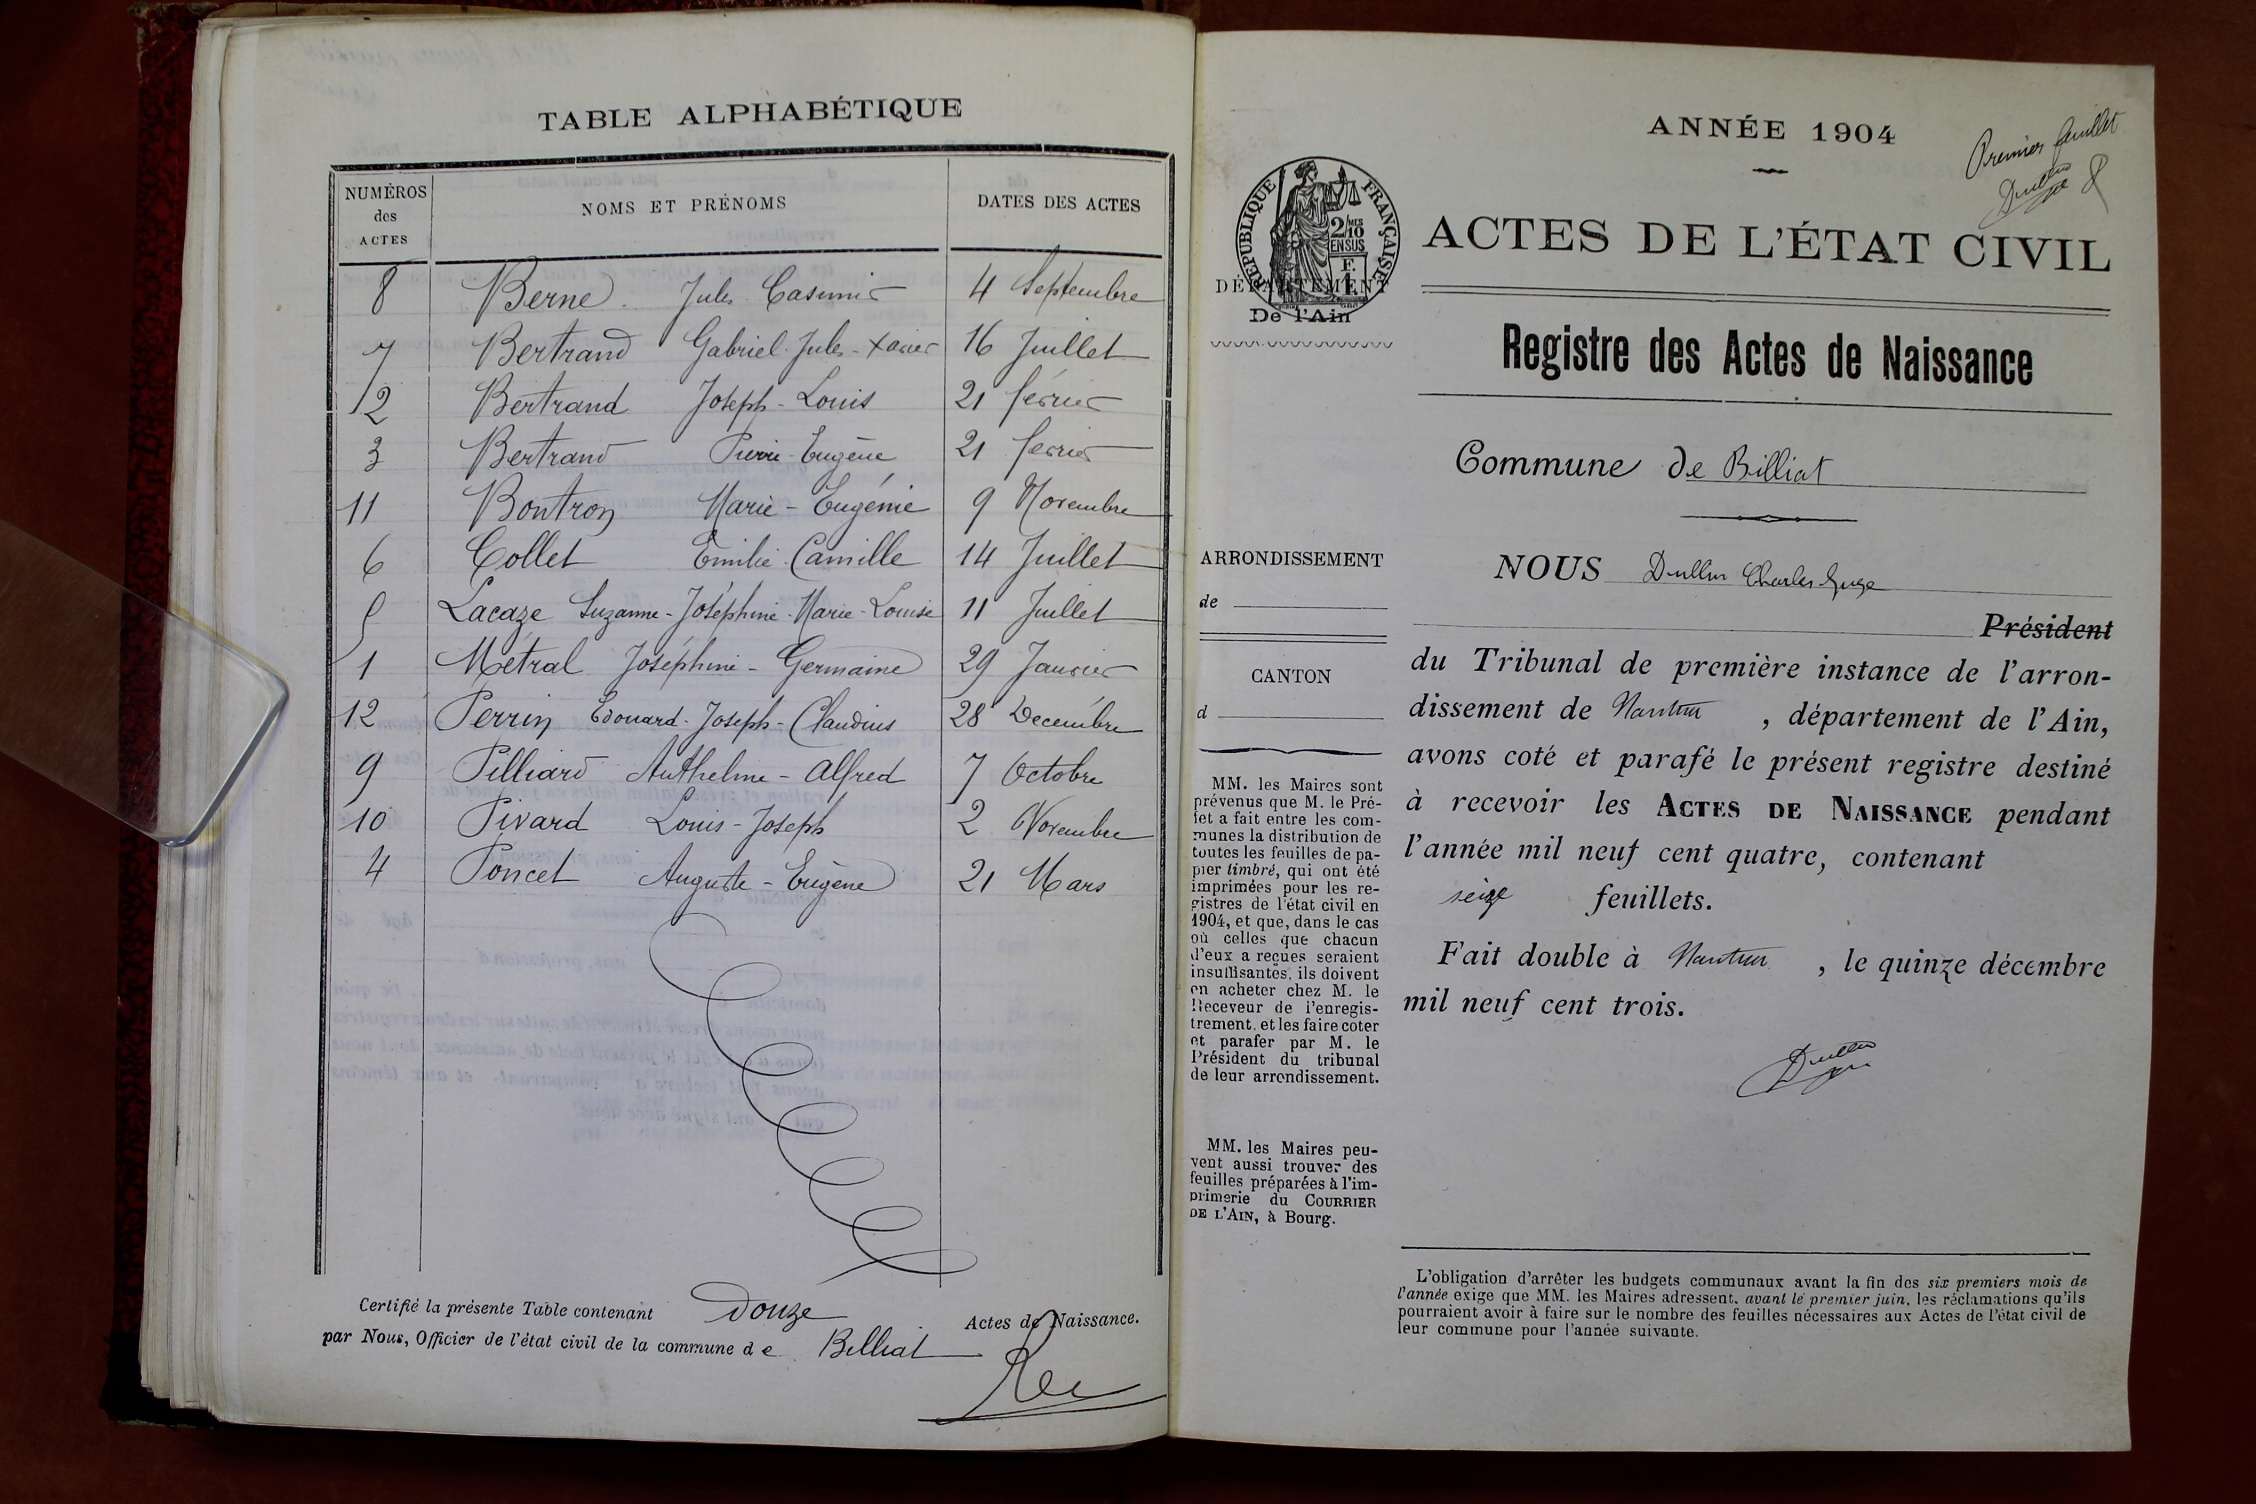 TABLE ALPHABÉTIQUE
NUMÉROS des ACTES NOMS ET PRÉNOMS DATES DES ACTES
8 Berne Jules Casimir 4 Septembre
7 Bertrand Gabriel-Jules-Xavier 16 Juillet
2 Bertrand Joseph-Louis 21 février
3 Bertrand Pierre-Eugène 21 février
11 Bontron Marie-Eugénie 9 Novembre
6 Collet Emilie Camille 14 Juillet
5 Lacaze Suzanne-Joséphine-Marie-Louise 11 Juillet
1 Métral Joséphine-Germaine 29 Janvier
12 Perrin Edouard-Joseph-Claudius 28 Decembre
9 Pilliard Anthelme-Alfred 7 Octobre
10 Pivard Louis-Joseph 2 Novembre
4 Poncet Auguste-Eugène 21 Mars
Certifié la présente Table contenant Douze Actes de Naissance.
par Nous, Officier de l'état civil de la commune de Billiat
ANNÉE 1904
Premier feuillet
ACTES DE L'ÉTAT CIVIL
RÉPUBLIQUE FRANÇAISE
2/10 MES
EN SUS
F.
1
DÉPARTEMENT
De l'Ain
Registre des Actes de Naissance
Commune de Billiat
ARRONDISSEMENT
de
CANTON
d
MM. les Maires sont
prévenus que M. le Pré-
fet a fait entre les com-
munes la distribution de
toutes les feuilles de pa-
pier timbré, qui ont été
imprimées pour les re-
gistres de l'état civil en
1904, et que, dans le cas
où celles que chacun
d'eux a reçues seraient
insuffisantes, ils doivent
en acheter chez M. le
Receveur de l'enregis-
trement, et les faire coter
et parafer par M. le
Président du tribunal
de leur arrondissement.
MM. les Maires peu-
vent aussi trouver des
feuilles préparées à l'im-
primerie du COURRIER
DE L'AIN, à Bourg.
NOUS Dullin Charles Juge
Président
du Tribunal de première instance de l'arron-
dissement de Nantua, département de l'Ain,
avons coté et parafé le présent registre destiné
à recevoir les ACTES DE NAISSANCE pendant
l'année mil neuf cent quatre, contenant
seize feuillets.
Fait double à Nantua, le quinze décembre
mil neuf cent trois.
Dullin
L'obligation d'arrêter les budgets communaux avant la fin des six premiers mois de
l'année exige que MM. les Maires adressent, avant le premier juin, les réclamations qu'ils
pourraient avoir à faire sur le nombre des feuilles nécessaires aux Actes de l'état civil de
leur commune pour l'année suivante.